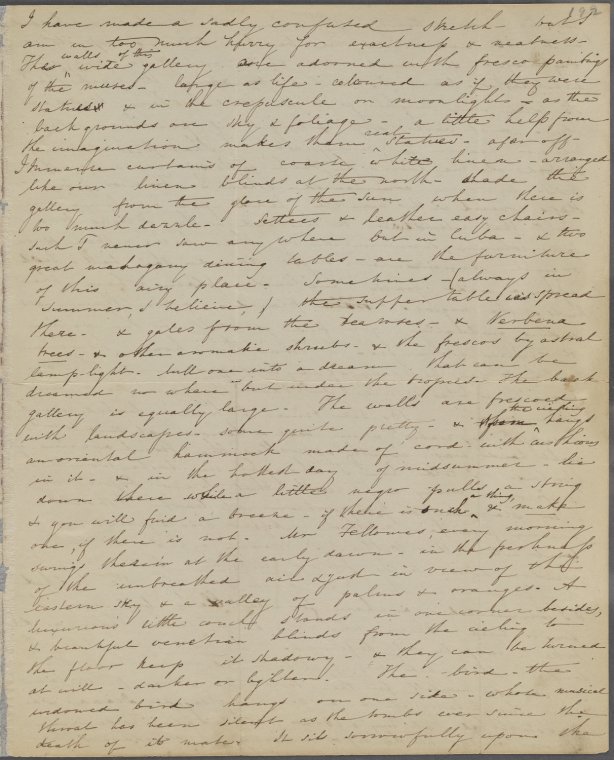 192
I have made a sadly confused sketch - but I
am in too much hurry for exactness & neatness.
The walls of this wide gallery are adorned with fresco paintings
of the muses - large as life - coloured as if they were
statues & in the crepuscule or moonlights - as the
back grounds are sky & foliage - a little help from
the imagination makes them real statues - afar off -
Immense curtains of coarse white linen - arranged
like our linen blinds at the north - shade the
gallery from the glare of the sun when there is
too much dazzle. Settees & leather easy chairs -
such I never saw any where but in Cuba - & two
great mahogany dining tables - are the furniture
of this airy place. Sometimes - (always in
summer, I believe,) the supper table is spread
there - & gales from the tea roses - & Verbena
trees - & other aromatic shrubs - & the frescos by astral
lamp-light - lull one into a dream that can be
dreamed no where but under the tropics. The back
gallery is equally large. The walls are frescoed
with landscapes - some quite pretty - & from the ceiling hangs
an oriental hammock made of cord with cushions
in it - & in the hottest day of midsummer - lie
down there while a little negro pulls a string
& you will find a breeze - if there is such a thing, & make
one, if there is not. Mr Fellowes, every morning
swings therein at the early dawn - in the freshness
of the unbreathed air & just in view of the
eastern sky & a valley of palms & oranges. A
luxurious little couch stands in one corner besides,
& beautiful venetian blinds from the ceiling to
the floor keep it shadowy - & they can be turned
at will - darker or lighter. The - bird - the
widowed bird hangs on one side - whose musical
throat has been silent as the tombs ever since the
death of its mate. It sits sorrowfully upon the